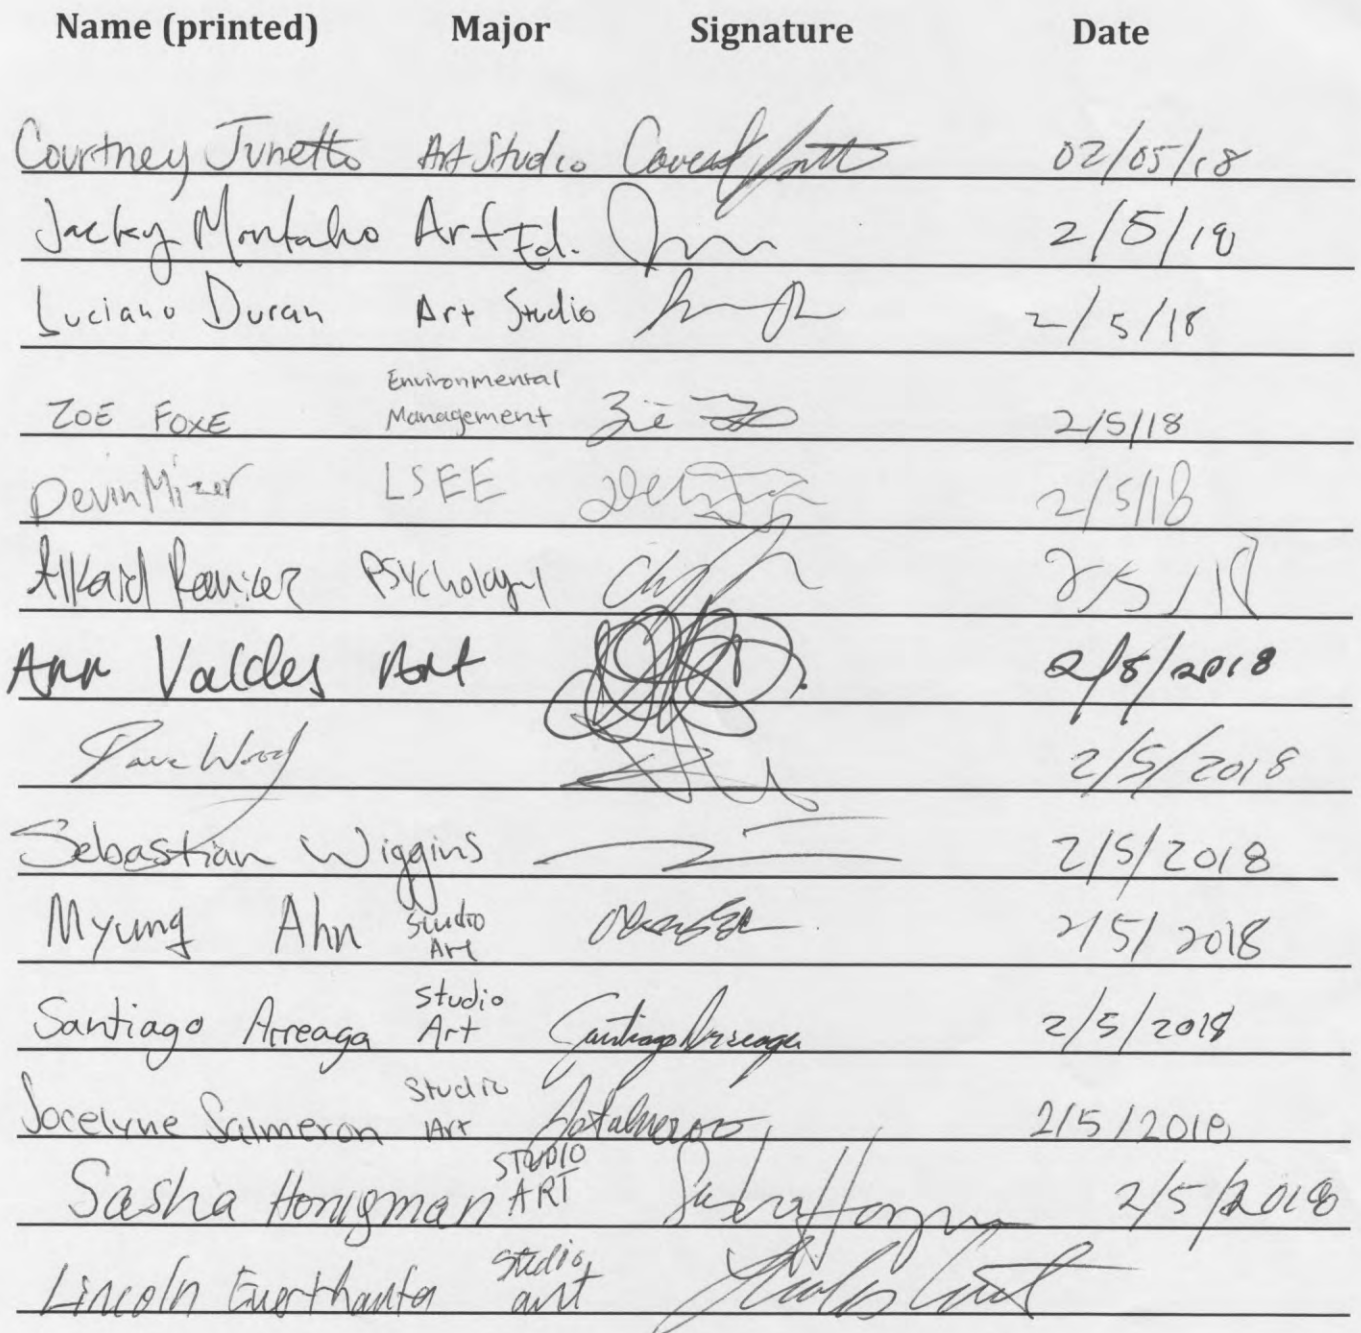 Name (printed) Major Signature Date
Courtney Junetto Art Studio 02/05/18
Jacky Art Ed. 2/5/18
Luciano Duran Art Studio 2/5/18
Environmental
ZOE FOXE Management Zoë 2/5/18
Devin Mizer LSEE 2/5/18
Alkaid Psychology 2/5/18
Ann Valdes Art 2/5/2018
Dave Wood 2/5/2018
Sebastian Wiggins 2/5/2018
Myung Ahn Studio Art 2/5/2018
Santiago Arreaga Studio Art Santiago Arreaga 2/5/2018
Jocelyne Salmeron Studio Art 2/5/2018
Sasha Honigman STUDIO ART Sasha 2/5/2018
Lincoln studio art